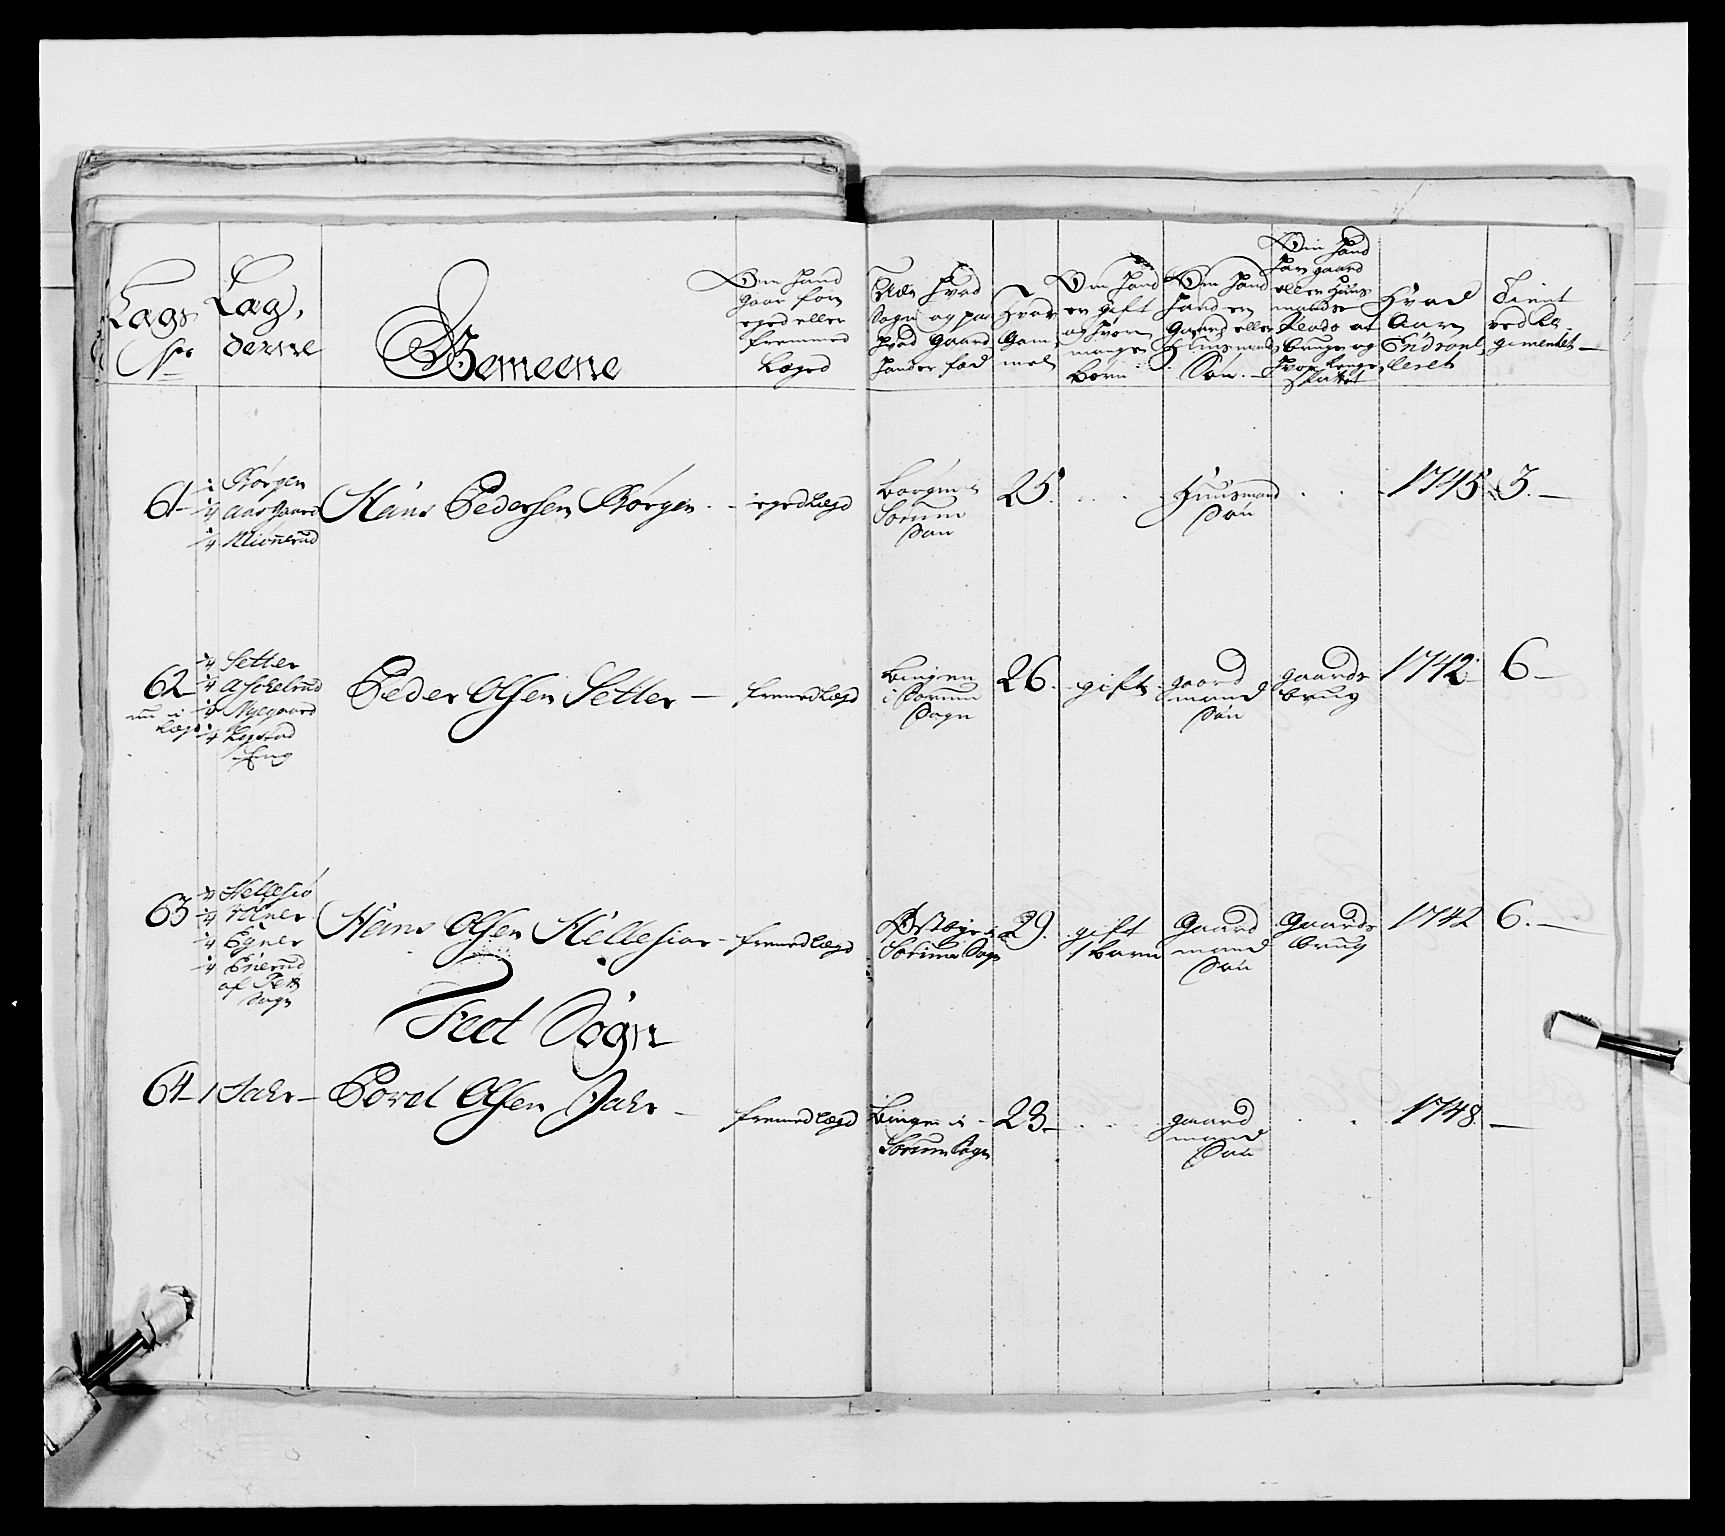 Lægs No
Læg,
derne
Gemeene
Om hand
gaar for
eged eller
fremmed
Læged
Udi hvad
Sogn og paa
hvad gaard
hand er fød
Hvor
Gam
mel
Om hand
er gift
og hvor
mange
børn
Om hand
er en
Gaard eller
Huusmands
Søn.
Om hand
har gaard
eller Huus
mands
Plads at
bruge og
hvor længe
Hvad
Aar
Enroul
leret
Tient
ved Re-
gimentet
61 ¼ Børgen
¼ Aasgaard
¼ Klionerud
Hans Pedersen Børgen
eged Lægd
Børgen i
Sørum
Sogn
25.
Huusmand
Søn
1745
3.
62 ¼ Setter
¼ Nyegaard
Eng
Peder Olsen Setter
fremed Lægd
Bingen
i Sørum
Sogn
26.
gift
gaard
mand
Søn
gaards
brug
1742
6
63 ¼ Hellesiø
¼ Egner
af Fet
Sogn
Hans Olsen Hellesiøe
fremed Lægd
Østbye i
Sørum Sogn
29.
gift
1 Barn
Gaard
mand
Søn
Gaards
brug
1742
6.
Feet Sogn
64 1 Jahr
Povel Olsen Jahr
fremed Lægd
Bingen i
Sørum Sogn
23
gaard
mand
Søn
1748